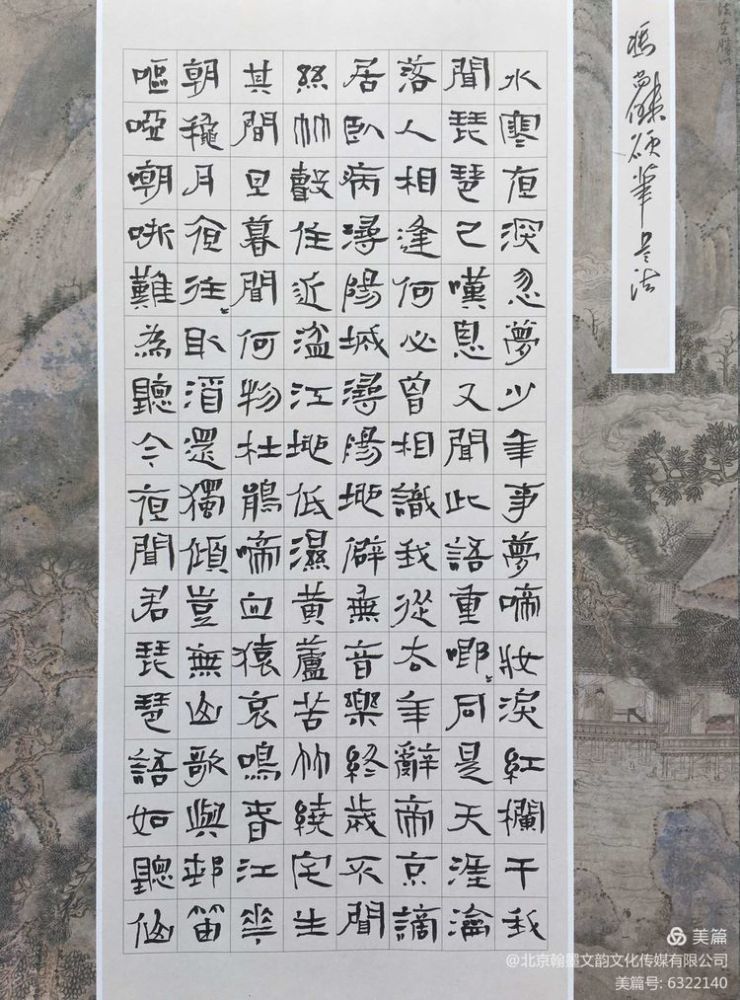 水寒夜深忽夢少年事夢啼妝淚紅欄干我
聞琵琶已嘆息又聞此語重唧〻同是天涯淪
落人相逢何必曾相識我從去年辭帝京謫
居臥病潯陽城潯陽地僻無音樂終歲不聞
絲竹聲住近湓江地低濕黃蘆苦竹繞宅生
其間旦暮聞何物杜鵑啼血猿哀鳴春江花
朝龝月夜往〻取酒還獨傾豈無山歌與邨笛
嘔啞嘲哳難為聽今夜聞君琵琶語如聽仙
美篇
@北京翰墨文韵文化传媒有限公司
美篇号: 6322140